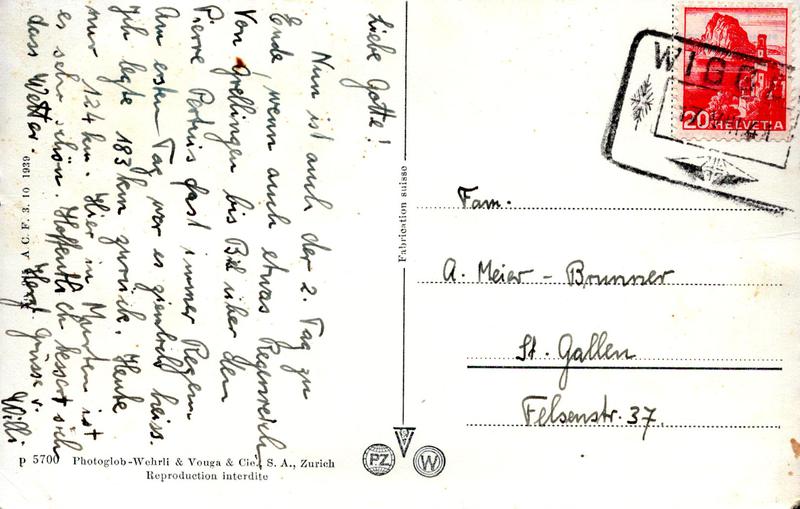 Liebe Gotte!
Nun ist auch der 2. Tag zu
Ende, wenn auch etwas Regenreich
Von Grellingen bis Biel über den
Pierre Pertuis fast immer Regen.
Am ersten Tag war es ziemlich heiss.
Ich legte 183 km zurück. Heute
nur 124 km. Hier in Murten ist
es sehr schön. Hoffentlich bessert sich
das Wetter. Herzl. Grüsse v.
Willi
A C F 3. 10. 1939
p 5700 Photoglob-Wehrli & Vouga & Cie., S. A., Zurich
Reproduction interdite
Fabrication suisse
PZ
V
W
WIGG
20 HELVETIA
Fam.
A. Meier - Brunner
St. Gallen
Felsenstr. 37.